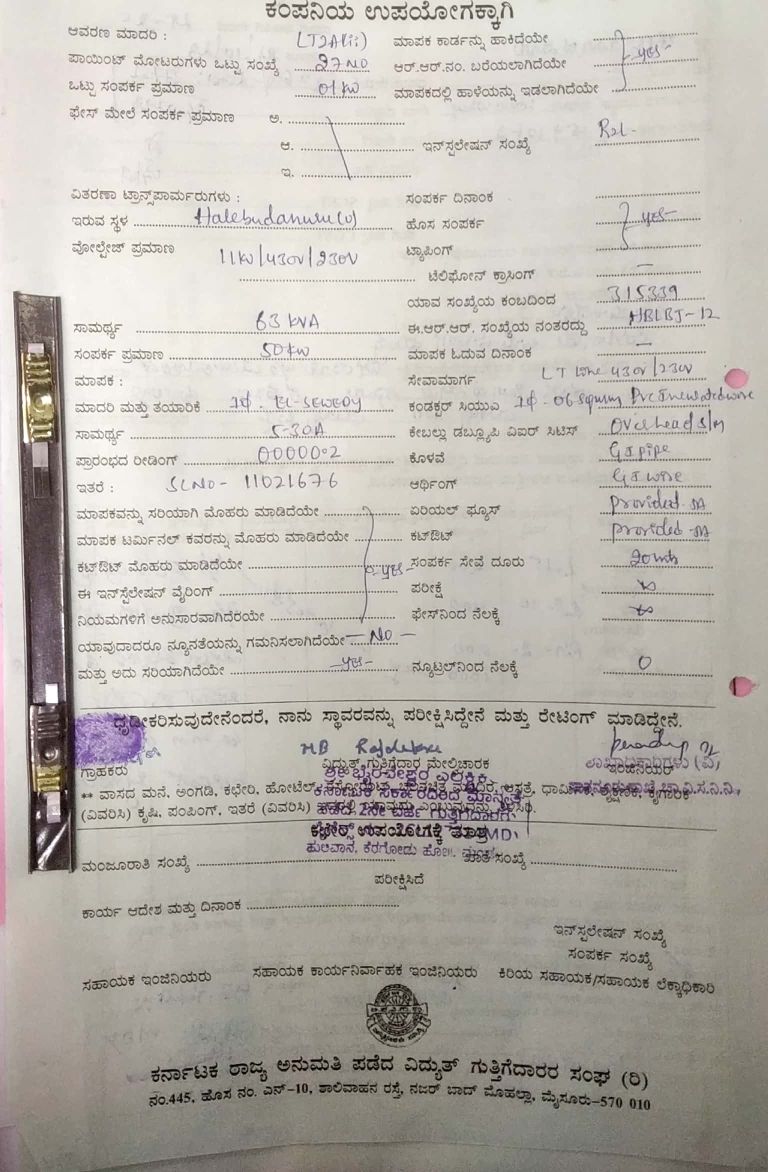 ಕಂಪನಿಯ ಉಪಯೋಗಕ್ಕಾಗಿ
ಆವರಣ ಮಾದರಿ : (LT2Aii) ಮಾಪಕ ಕಾರ್ಡನ್ನು ಹಾಕಿದೆಯೇ
ಪಾಯಿಂಟ್ ಮೋಟರುಗಳು ಒಟ್ಟು ಸಂಖ್ಯೆ 27 NO ಆರ್.ಆರ್.ನಂ. ಬರೆಯಲಾಗಿದೆಯೇ yes
ಒಟ್ಟು ಸಂಪರ್ಕ ಪ್ರಮಾಣ 01 KW ಮಾಪಕದಲ್ಲಿ ಹಾಳೆಯನ್ನು ಇಡಲಾಗಿದೆಯೇ
ಫೇಸ್ ಮೇಲೆ ಸಂಪರ್ಕ ಪ್ರಮಾಣ ಅ.
ಆ. ಇನ್‌ಸ್ಪಲೇಷನ್ ಸಂಖ್ಯೆ
ಇ.
ವಿತರಣಾ ಟ್ರಾನ್ಸ್‌ಪಾರ್ಮರುಗಳು : ಸಂಪರ್ಕ ದಿನಾಂಕ
ಇರುವ ಸ್ಥಳ Halebudanuru(v) ಹೊಸ ಸಂಪರ್ಕ yes
ವೋಲ್ಟೇಜ್ ಪ್ರಮಾಣ 11KV/430V/230V ಟ್ಯಾಪಿಂಗ್
ಟೆಲಿಫೋನ್ ಕ್ರಾಸಿಂಗ್ —
ಯಾವ ಸಂಖ್ಯೆಯ ಕಂಬದಿಂದ 315339
ಸಾಮರ್ಥ್ಯ 63 KVA ಈ.ಆರ್.ಆರ್. ಸಂಖ್ಯೆಯ ನಂತರದ್ದು HBLBJ-12
ಸಂಪರ್ಕ ಪ್ರಮಾಣ 50 KW ಮಾಪಕ ಓದುವ ದಿನಾಂಕ —
ಮಾಪಕ : ಸೇವಾಮಾರ್ಗ LT line 430V/230V
ಮಾದರಿ ಮತ್ತು ತಯಾರಿಕೆ 1ϕ. EL-SEWEDY ಕಂಡಕ್ಟರ್ ಸಿಯುಎ 1ϕ. 06 sqmm PVC Insulated wire
ಸಾಮರ್ಥ್ಯ 5-30A ಕೇಬಲ್ಲು ಡಬ್ಲ್ಯೂಪಿ ವಿಐರ್ ಸಿಟಿಸ್ Overhead s/m
ಪ್ರಾರಂಭದ ರೀಡಿಂಗ್ 00000.2 ಕೊಳವೆ GI pipe
ಇತರೆ : SLNO- 11021676 ಆರ್ಥಿಂಗ್ GI wire
ಮಾಪಕವನ್ನು ಸರಿಯಾಗಿ ಮೊಹರು ಮಾಡಿದೆಯೇ ಏರಿಯಲ್ ಫ್ಯೂಸ್ provided
ಮಾಪಕ ಟರ್ಮಿನಲ್ ಕವರನ್ನು ಮೊಹರು ಮಾಡಿದೆಯೇ ಕಟ್‌ಔಟ್ provided
ಕಟ್‌ಔಟ್ ಮೊಹರು ಮಾಡಿದೆಯೇ yes ಸಂಪರ್ಕ ಸೇವೆ ದೂರು 20 mts
ಈ ಇನ್‌ಸ್ಪೆಲೇಷನ್ ವೈರಿಂಗ್ ಪರೀಕ್ಷೆ ∞
ನಿಯಮಗಳಿಗೆ ಅನುಸಾರವಾಗಿದೆರಯೇ ಫೇಸ್‌ನಿಂದ ನೆಲಕ್ಕೆ ∞
ಯಾವುದಾದರೂ ನ್ಯೂನತೆಯನ್ನು ಗಮನಿಸಲಾಗಿದೆಯೇ — NO —
ಮತ್ತು ಅದು ಸರಿಯಾಗಿದೆಯೇ — yes - ನ್ಯೂಟ್ರಲ್‌ನಿಂದ ನೆಲಕ್ಕೆ 0
ಧೃಡೀಕರಿಸುವುದೇನೆಂದರೆ, ನಾನು ಸ್ಥಾವರವನ್ನು ಪರೀಕ್ಷಿಸಿದ್ದೇನೆ ಮತ್ತು ರೇಟಿಂಗ್ ಮಾಡಿದ್ದೇನೆ.
ಗ್ರಾಹಕರು ವಿದ್ಯುತ್ ಗುತ್ತಿಗೆದಾರ ಮೇಲ್ವಿಚಾರಕ ಇಂಜಿನಿಯರ್
** ವಾಸದ ಮನೆ, ಅಂಗಡಿ, ಕಛೇರಿ, ಹೋಟೆಲ್,
(ವಿವರಿಸಿ) ಕೃಷಿ, ಪಂಪಿಂಗ್, ಇತರೆ (ವಿವರಿಸಿ)
ಕಛೇರಿ ಉಪಯೋಗಕ್ಕೆ ಮಾತ್ರ
ಮಂಜೂರಾತಿ ಸಂಖ್ಯೆ ಖಾತೆ ಸಂಖ್ಯೆ
ಪರೀಕ್ಷಿಸಿದೆ
ಕಾರ್ಯ ಆದೇಶ ಮತ್ತು ದಿನಾಂಕ
ಇನ್‌ಸ್ಪಲೇಷನ್ ಸಂಖ್ಯೆ
ಸಂಪರ್ಕ ಸಂಖ್ಯೆ
ಸಹಾಯಕ ಇಂಜಿನಿಯರು ಸಹಾಯಕ ಕಾರ್ಯನಿರ್ವಾಹಕ ಇಂಜಿನಿಯರು ಕಿರಿಯ ಸಹಾಯಕ/ಸಹಾಯಕ ಲೆಕ್ಕಾಧಿಕಾರಿ
ಕರ್ನಾಟಕ ರಾಜ್ಯ ಅನುಮತಿ ಪಡೆದ ವಿದ್ಯುತ್ ಗುತ್ತಿಗೆದಾರರ ಸಂಘ (ರಿ)
ನಂ.445, ಹೊಸ ನಂ. ಎನ್-10, ಶಾಲಿವಾಹನ ರಸ್ತೆ, ನಜರ್ ಬಾದ್ ಮೊಹಲ್ಲಾ, ಮೈಸೂರು-570 010